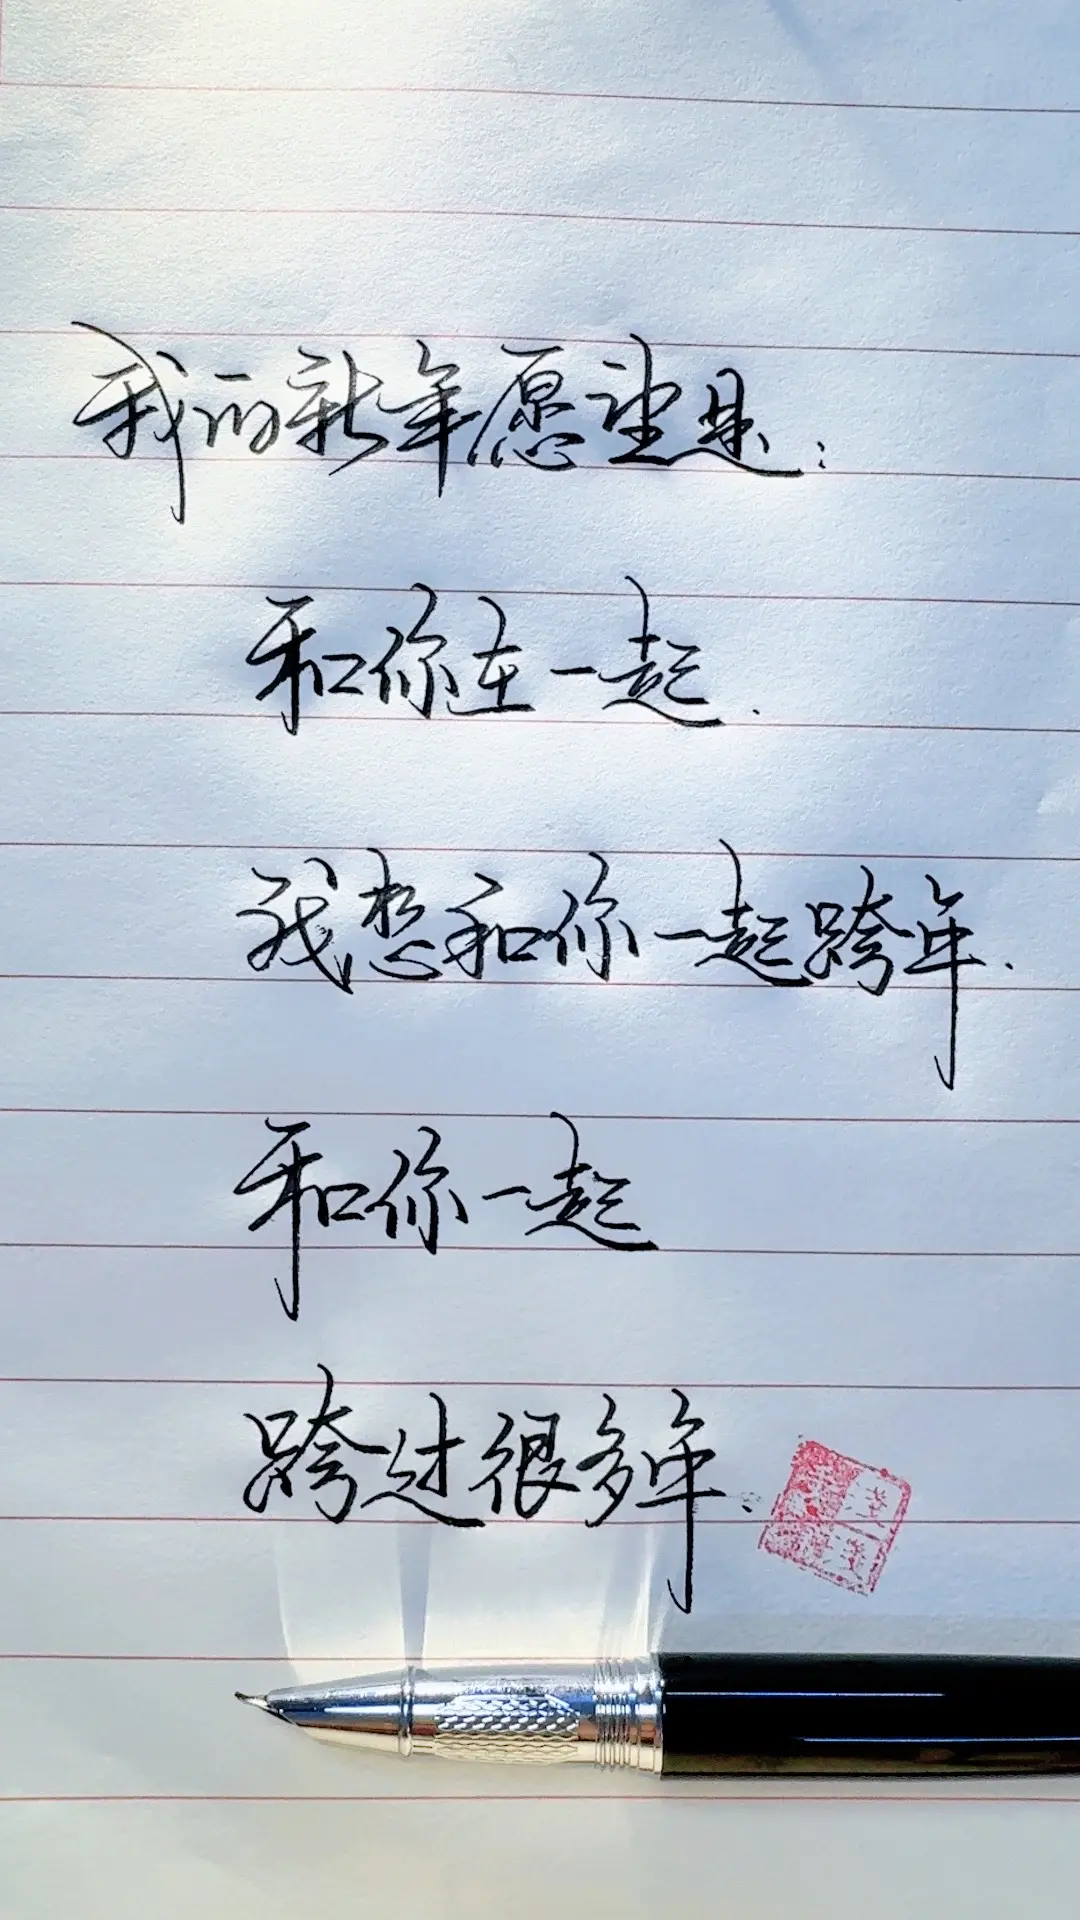 我的新年愿望是：
和你在一起.
我想和你一起跨年.
和你一起
跨过很多年.